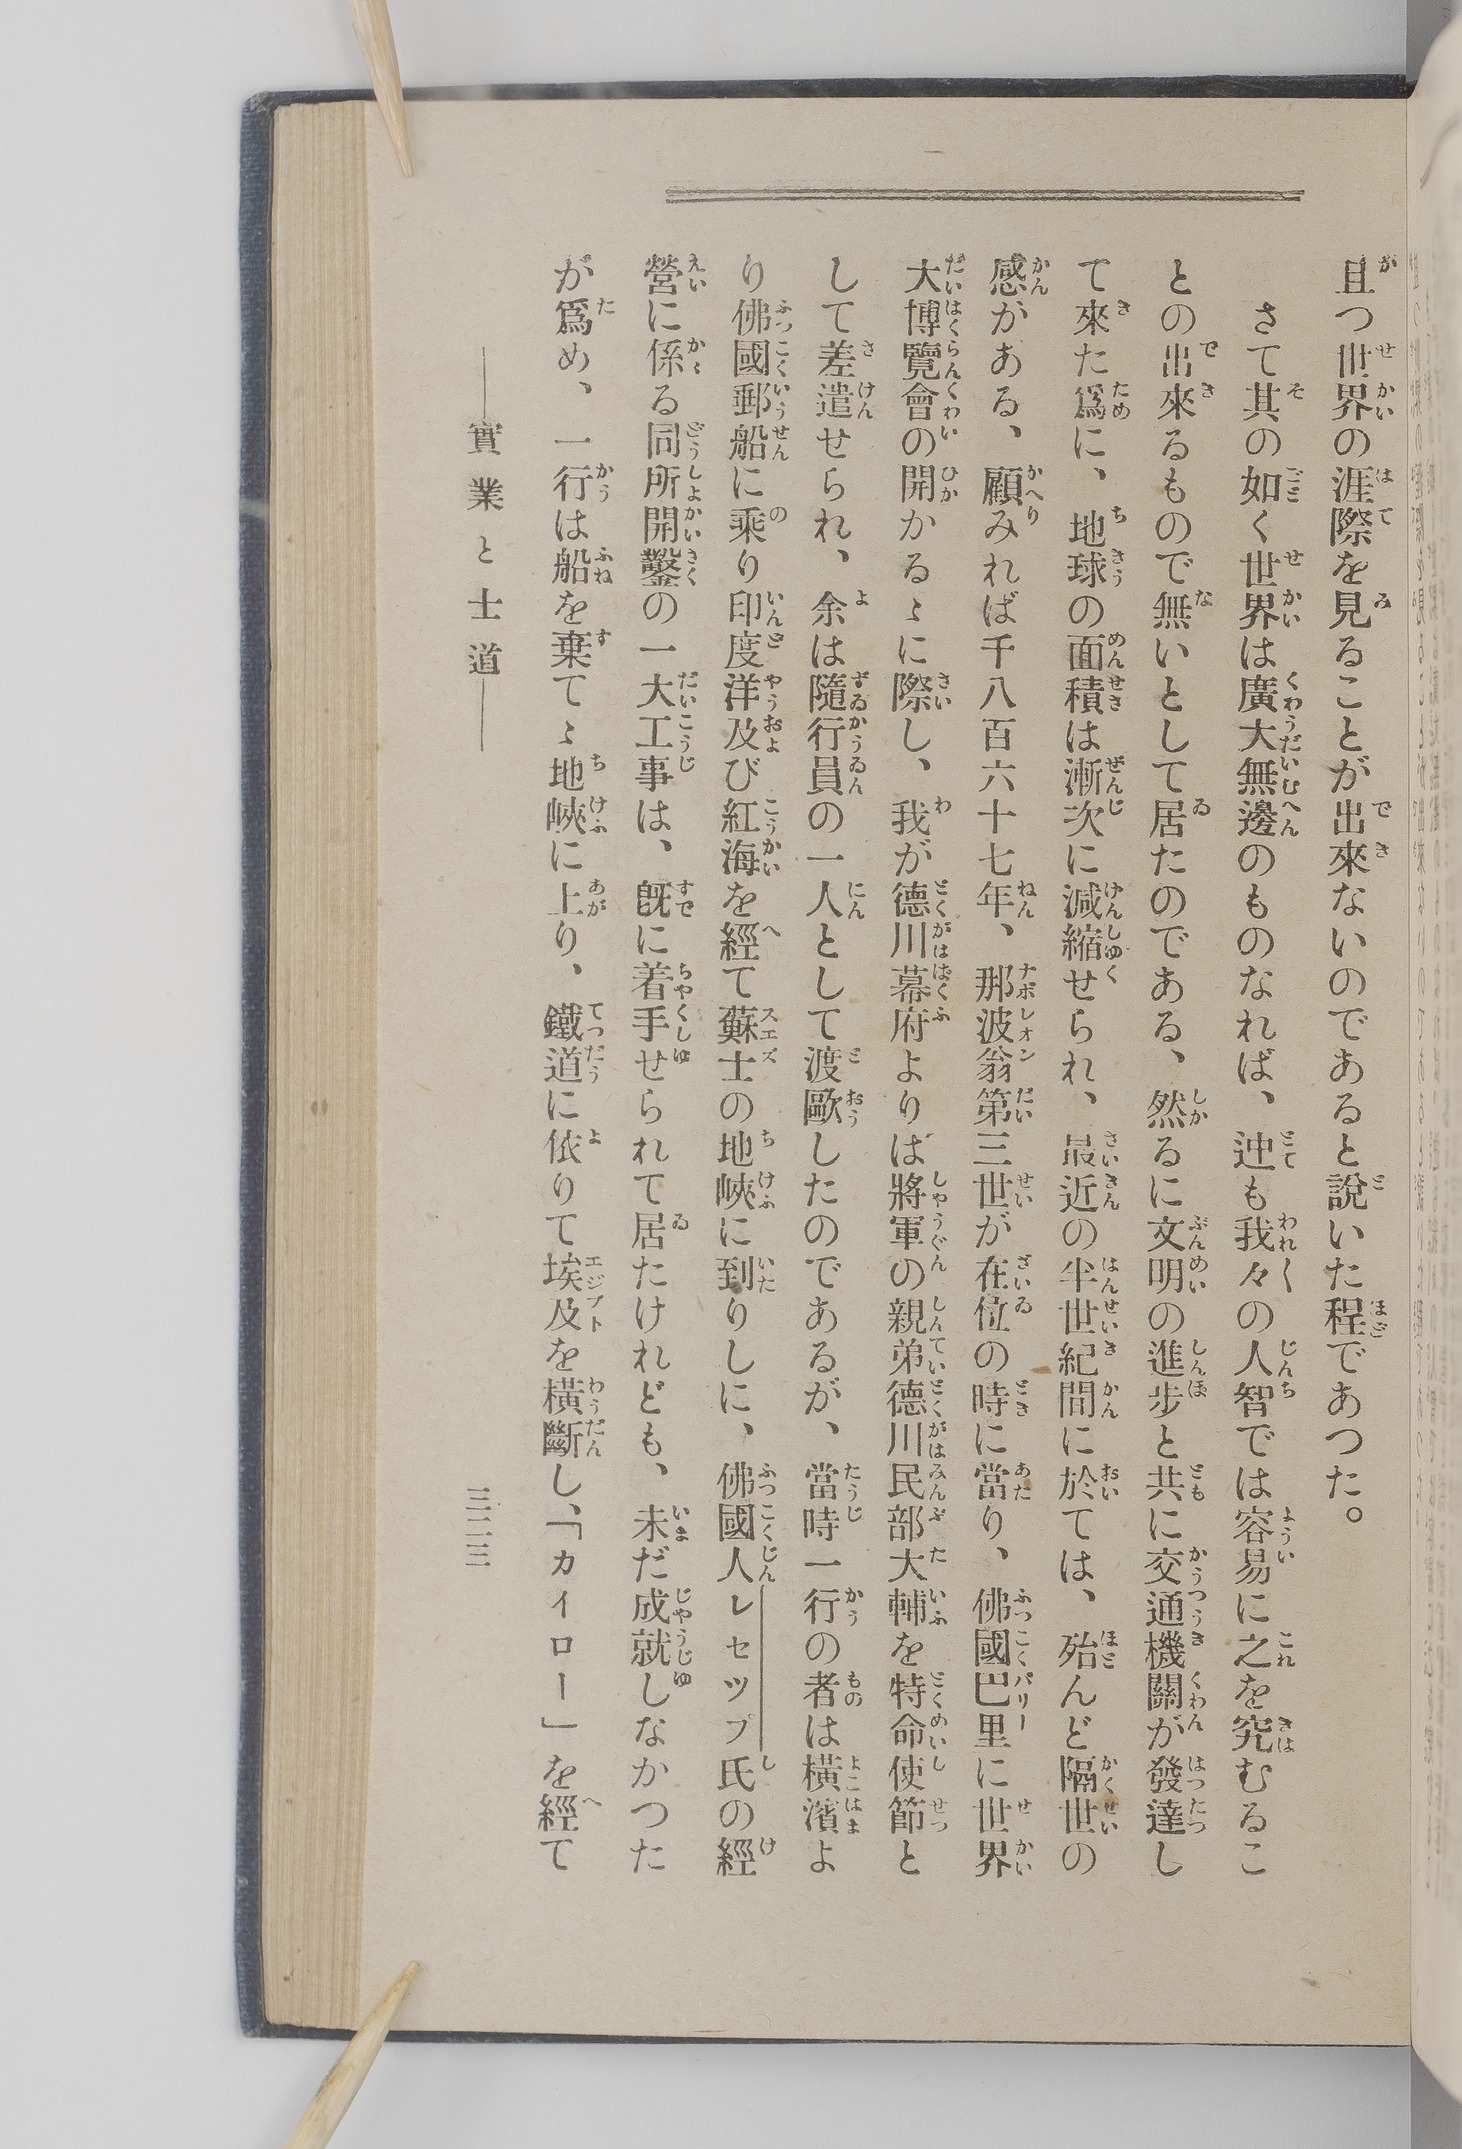 且つ世界の涯際を見ることが出來ないのであると說いた程であつた。
さて其の如く世界は廣大無邊のものなれば、迚も我々の人智では容易に之を究むるこ
との出來るもので無いとして居たのである、然るに文明の進步と共に交通機關が發達し
て來た爲に、地球の面積は漸次に減縮せられ、最近の半世紀間に於ては、殆んど隔世の
感がある、顧みれば千八百六十七年、那波翁第三世が在位の時に當り、佛國巴里に世界
大博覽會の開かるゝに際し、我が德川幕府よりは將軍の親弟德川民部大輔を特命使節と
して差遣せられ、余は隨行員の一人として渡歐したのであるが、當時一行の者は橫濱よ
り佛國郵船に乘り印度洋及び紅海を經て蘇士の地峽に到りしに、佛國人レセツプ氏の經
營に係る同所開鑿の一大工事は、旣に着手せられて居たけれども、未だ成就しなかつた
が爲め、一行は船を棄てゝ地峽に上り、鐵道に依りて埃及を橫斷し、「カイロー」を經て
實業と士道
三二三